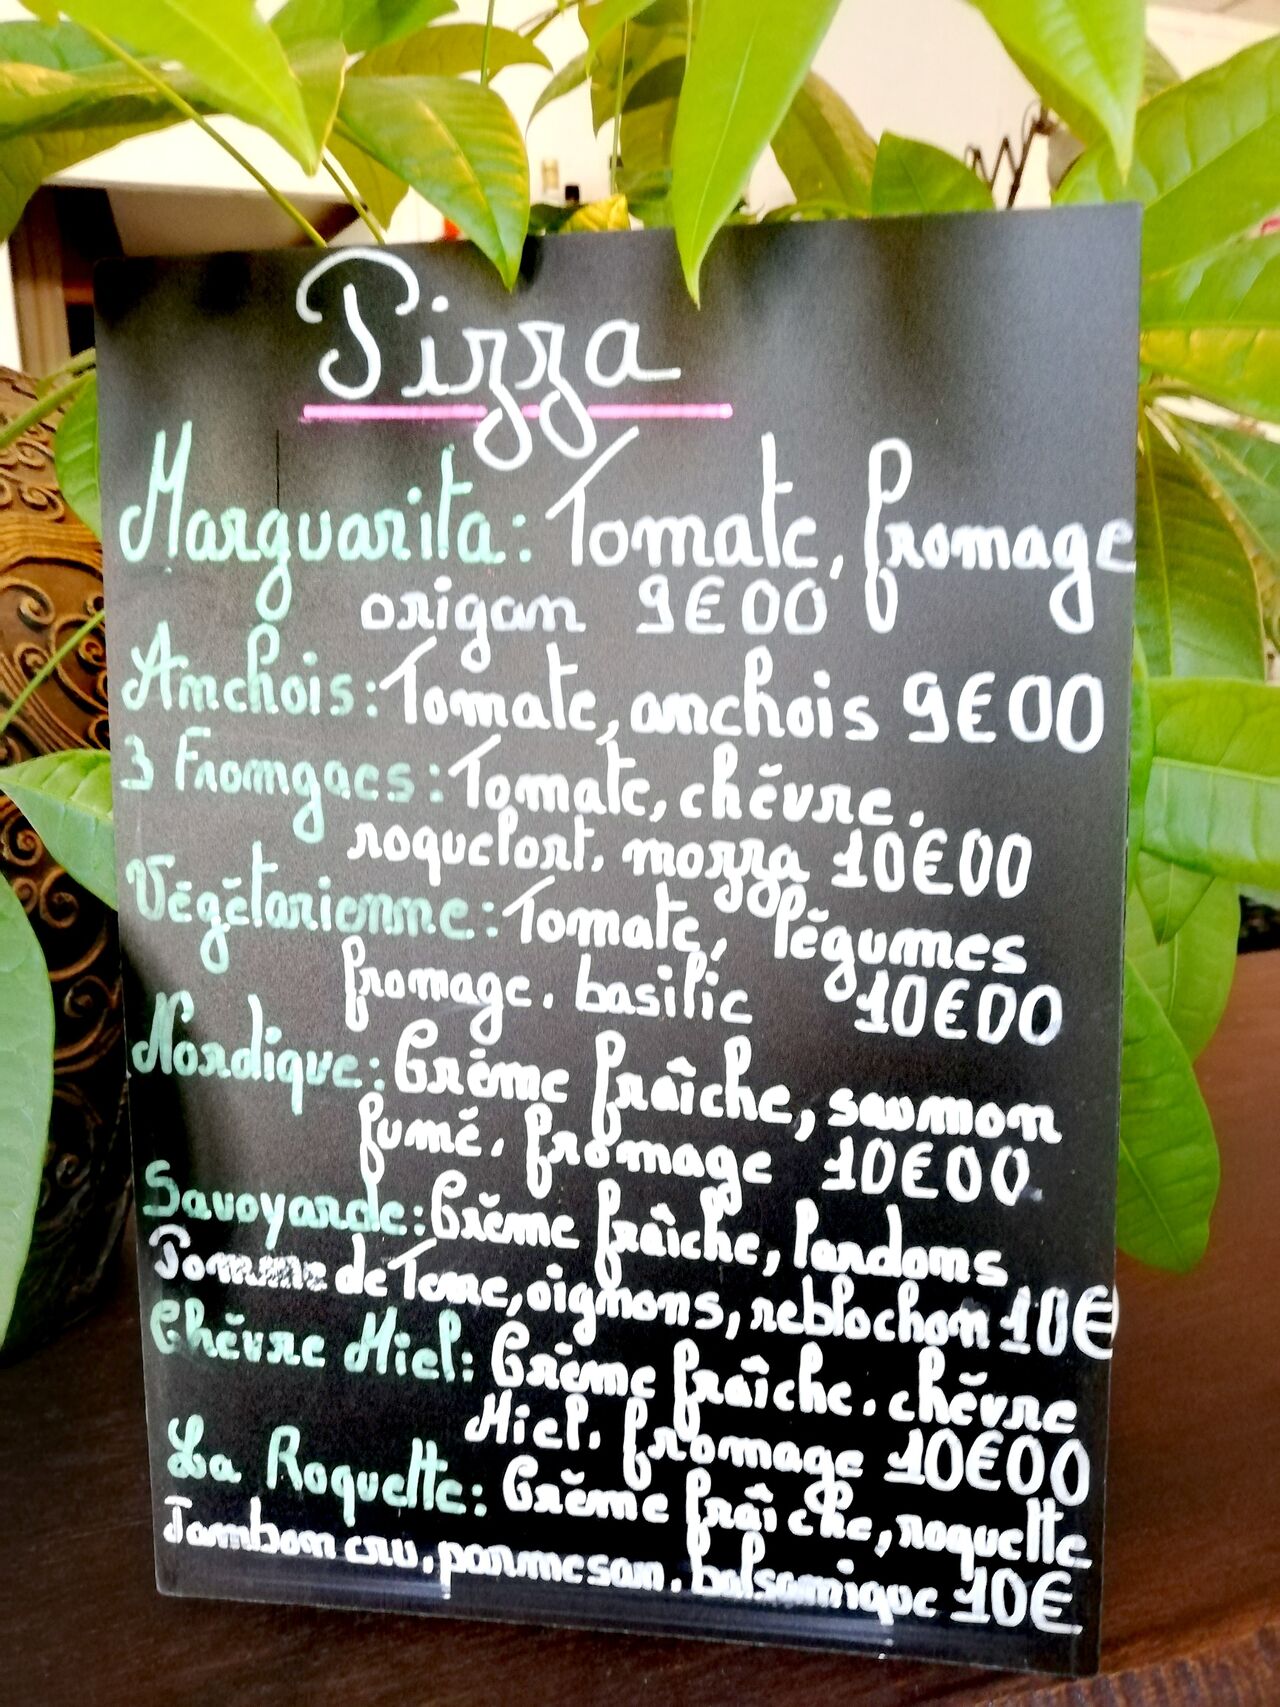 Pizza
Marguarita: Tomate, fromage
origan 9€00
Anchois: Tomate, anchois 9€00
3 Fromgaes: Tomate, chèvre.
roquefort. mozza 10€00
Végétarienne: Tomate, légumes
fromage. basilic 10€00
Nordique: Crème fraîche, saumon
fumé. fromage 10€00
Savoyarde: Crème fraîche, lardons
Pomme de Terre, oignons, reblochon 10€
Chèvre Miel: Crème fraîche. chèvre
Miel. fromage 10€00
La Roquette: Crème fraîche, roquette
Jambon cru, parmesan. balsamique 10€